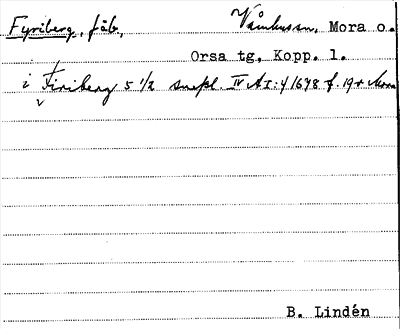 Fyriberg, fäb., Våmhussn, Mora o.
Orsa tg, Kopp. l.
i Firiberg 5 1/2 snepl. IV A I:4 1678 f. 19 v Mora
B. Lindén